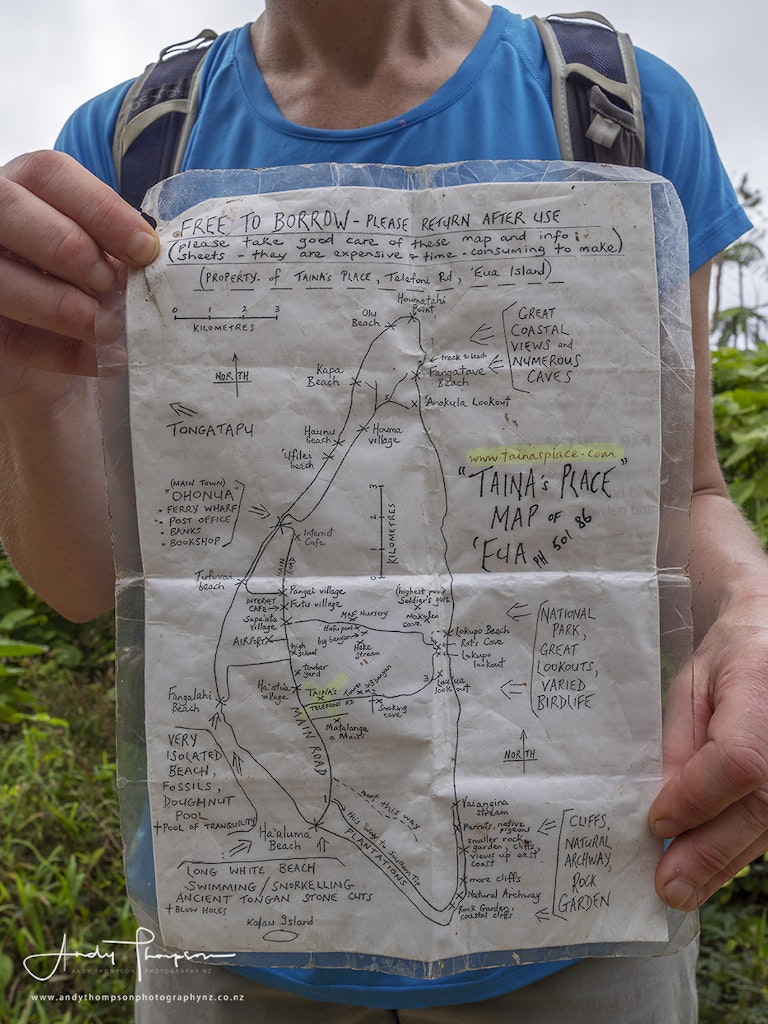 FREE TO BORROW - PLEASE RETURN AFTER USE
(please take good care of these map and info
sheets - they are expensive & time-consuming to make)
(PROPERTY of TAINA'S PLACE, Telefoni Rd, 'Eua Island)
0 1 2 3
KILOMETRES
NORTH
TONGATAPU
Houmatahi
Point
Olu
Beach
← track to beach
Fangatave
Beach
Kapa
Beach
'Anokula Lookout
5
Haunu
beach
Houma
village
'Ufilei
beach
GREAT
COASTAL
VIEWS and
NUMEROUS
CAVES
www.tainasplace.com
"TAINA'S PLACE"
MAP OF
'EUA PH 501 86
(MAIN TOWN)
'OHONUA
- FERRY WHARF
- POST OFFICE
- BANKS
- BOOKSHOP
Internet
Cafe
MAIN
ROAD
3
2
1
0
KILOMETRES
Tufuvai
beach
Pangai village
INTERNET
CAFE →
Futu village
Sapa'ata
village
AIRPORT
MAF Nursery
Hafu pool
big banyan
Heke
stream
high
school
timber
yard
Ha'atu'a
village
TAINA'S
TELEFONI RD
big banyan
2
Smoking
cave
Matalanga
a Maui
(highest point)
Soldier's grave
Makylea
cave
Lokupo Beach
Rat's Cave
Lokupo
lookout
3
Lauua
lookout
NATIONAL
PARK,
GREAT
LOOKOUTS,
VARIED
BIRDLIFE
NORTH
Fangalahi
Beach
VERY
ISOLATED
BEACH,
FOSSILS,
DOUGHNUT
POOL
+ POOL OF TRANQUILITY
MAIN ROAD
Ha'aluma
Beach
1
not this way
this way to Southern Tip
PLANTATIONS
Vaiangina
stream
Parrots, native
pigeons
smaller rock
garden, cliffs,
views up east
coast
more cliffs
Natural Archway
Rock Garden,
coastal cliffs
CLIFFS,
NATURAL
ARCHWAY,
ROCK
GARDEN
LONG WHITE BEACH
SWIMMING / SNORKELLING
ANCIENT TONGAN STONE CUTS
+ BLOW HOLES
Kalau Island
Andy Thompson
ANDY THOMPSON PHOTOGRAPHY NZ
www.andythompsonphotographynz.co.nz